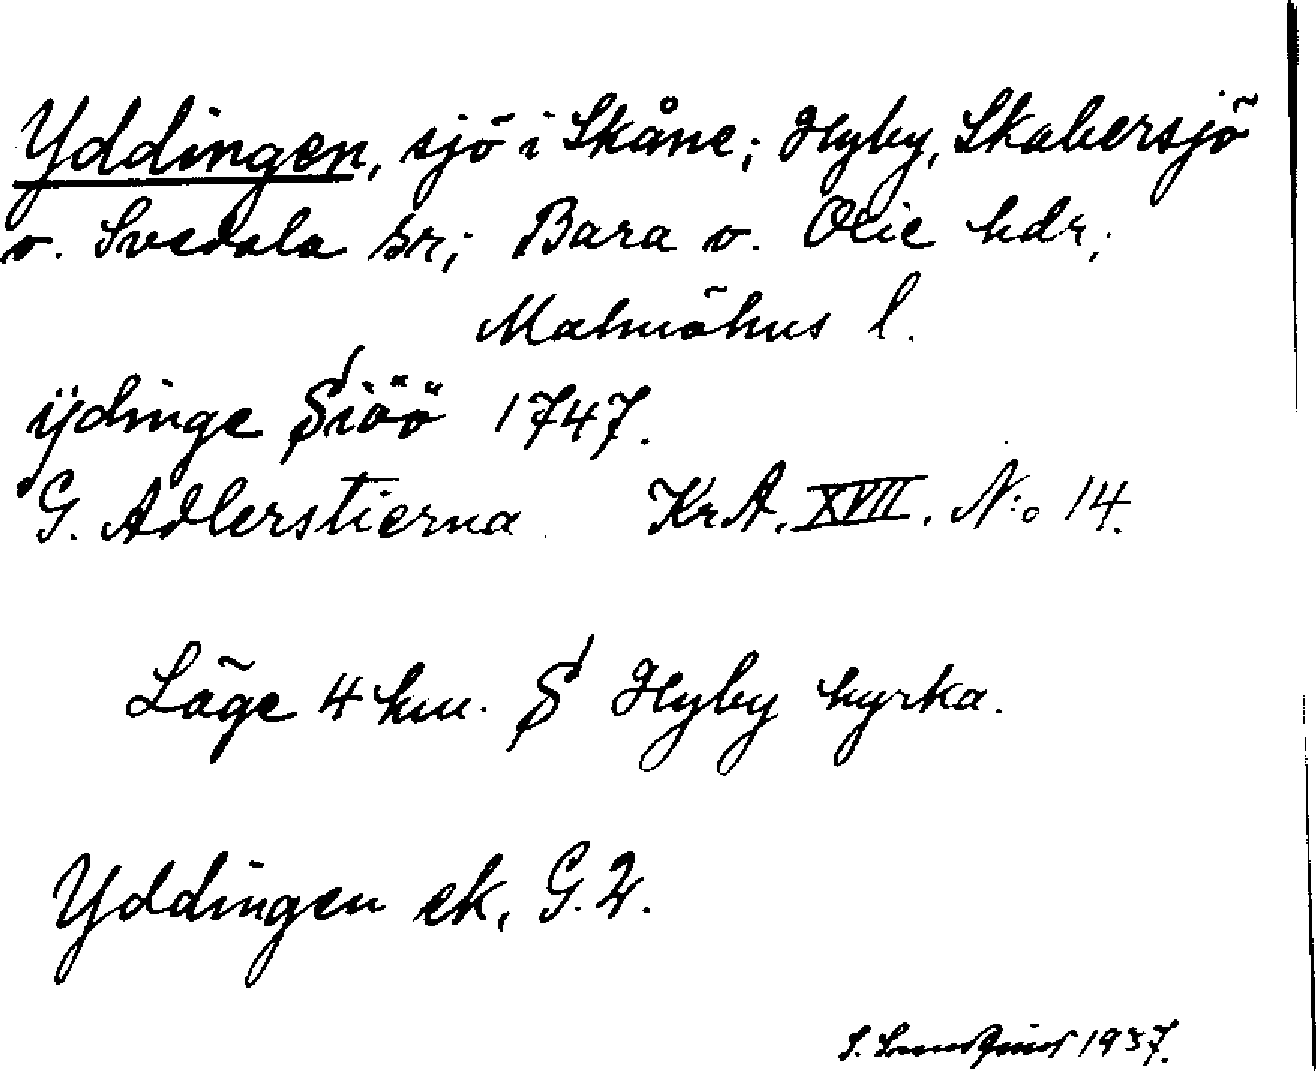 Yddingen, sjö i Skåne; Hyby, Skabersjö
o. Svedala sr; Bara o. Oxie hdr,
Malmöhus l.
ÿdinge Siöö 1747.
G. Adlerstierna KrA. XVII. N:o 14.
Läge 4 km. S Hyby kyrka.
Yddingen ek. G.2.
S. 1937.